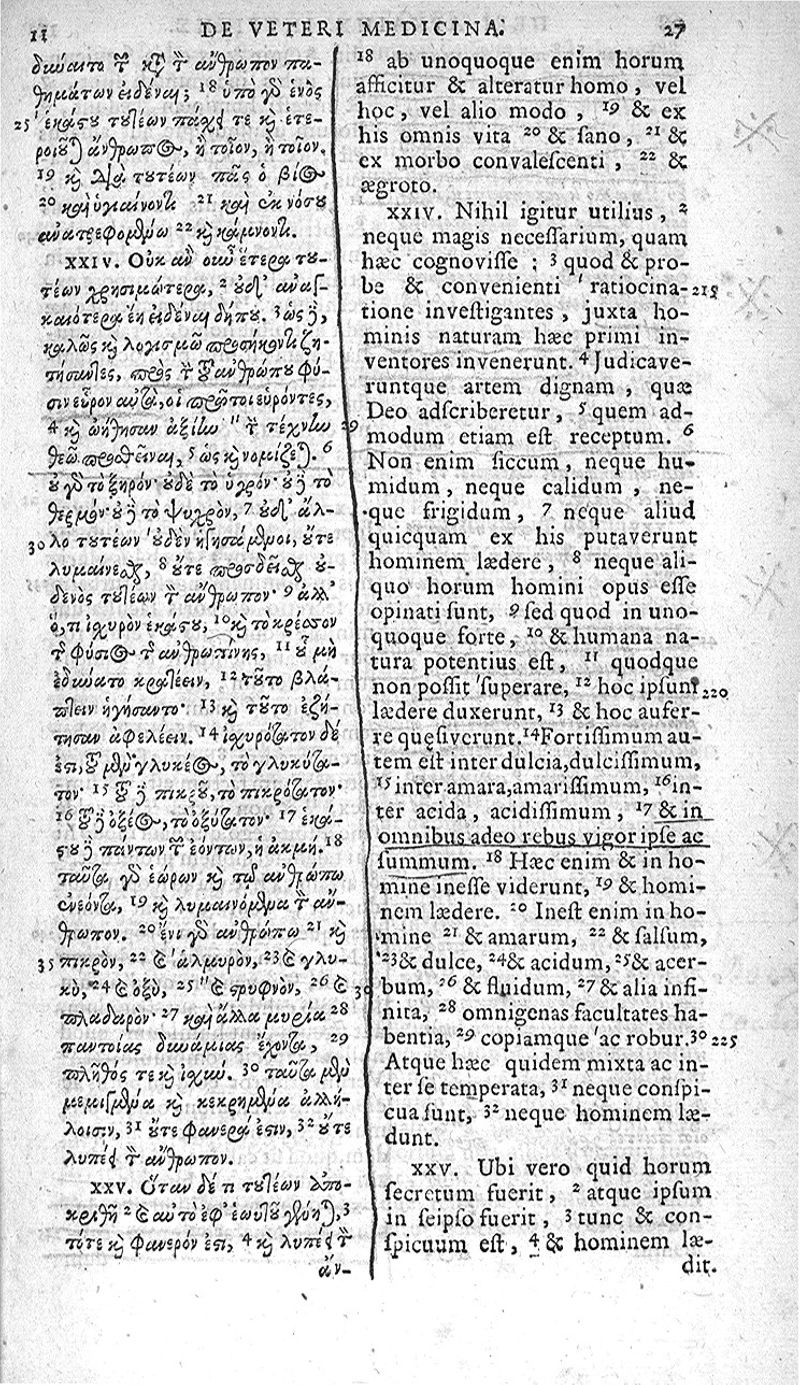 11 DE VETERI MEDICINA. 27
δύναιτο τῶν κατὰ τὸν ἄνθρωπον πα-
θημάτων εἰδέναι; 18 ὑπὸ γὰρ ἑνὸς
25 ἑκάστου τουτέων πάσχει τε καὶ ἑτε-
ροιοῦται ἄνθρωπος, ἢ τοῖον, ἢ τοῖον.
19 καὶ διὰ τουτέων πᾶς ὁ βίος
20 καὶ ὑγιαίνοντι 21 καὶ ἐκ νόσου
ἀνατρεφομένῳ 22 καὶ κάμνοντι.
XXIV. Οὐκ ἂν οὖν ἕτερα του-
τέων χρησιμώτερα, 2 οὐδ' ἀναγ-
καιότερα εἴη εἰδέναι δήπου. 3 ὡς δὲ,
καλῶς καὶ λογισμῷ προσήκοντι ζη-
τήσαντες, πρὸς τὴν τοῦ ἀνθρώπου φύ-
σιν εὗρον αὐτὰ, οἱ πρῶτοι εὑρόντες,
4 καὶ ᾠήθησαν ἀξίην " τὴν τέχνην 29
θεῷ προσθεῖναι, 5 ὡς καὶ νομίζεται. 6
οὐ γὰρ τὸ ξηρόν· οὐδὲ τὸ ὑγρόν· οὐδὲ τὸ
θερμόν· οὐδὲ τὸ ψυχρὸν, 7 οὐδ' ἄλ-
30 λο τουτέων 'οὐδὲν ἡγησάμενοι, οὔτε
λυμαίνεσθαι, 8 οὔτε προσδεῖσθαι οὐ-
δενὸς τουτέων τὸν ἄνθρωπον· 9 ἀλλ'
ὅ,τι ἰσχυρὸν ἑκάστου, 10 καὶ τὸ κρέσσον
τῆς φύσιος τῆς ἀνθρωπίνης, 11 οὗ μὴ
ἐδύνατο κρατέειν, 12 τοῦτο βλά-
πτειν ἡγήσαντο· 13 καὶ τοῦτο ἐζή-
τησαν ἀφελέειν. 14 ἰσχυρότατον δέ
ἐστι, τοῦ μὲν γλυκέος, τὸ γλυκύτα-
τον· 15 τοῦ δὲ πικροῦ, τὸ πικρότατον·
16 τοῦ δὲ ὀξέος, τὸ ὀξύτατον· 17 ἑκά-
στου δὲ πάντων τῶν ἐόντων, ἡ ἀκμή. 18
ταῦτα γὰρ ἑώρων καὶ τῷ ἀνθρώπῳ
ἐνεόντα, 19 καὶ λυμαινόμενα τὸν ἄν-
θρωπον. 20 ἔνι γὰρ ἀνθρώπῳ 21 καὶ
35 πικρὸν, 22 καὶ 'ἁλμυρὸν, 23 καὶ γλυ-
κὺ, 24 καὶ ὀξὺ, 25 " καὶ στρυφνὸν, 26 καὶ 30
πλαδαρόν· 27 καὶ ἄλλα μυρία 28
παντοίας δυνάμιας ἔχοντα, 29
πλῆθός τε καὶ ἰσχύν. 30 ταῦτα μὲν
μεμιγμένα καὶ κεκρημένα ἀλλή-
λοισιν, 31 οὔτε φανερά ἐστιν, 32 οὔτε
λυπέει τὸν ἄνθρωπον.
XXV. Ὅταν δέ τι τουτέων ἀπο-
κριθῇ 2 καὶ αὐτὸ ἐφ' ἑωυτοῦ γένηται, 3
τότε καὶ φανερόν ἐστι, 4 καὶ λυπέει τὸν
ἄν-
18 ab unoquoque enim horum
afficitur & alteratur homo, vel
hoc, vel alio modo, 19 & ex
his omnis vita 20 & sano, 21 &
ex morbo convalescenti, 22 &
ægroto.
XXIV. Nihil igitur utilius, 2
neque magis necessarium, quam
hæc cognovisse: 3 quod & pro-
be & convenienti 'ratiocina- 215
tione investigantes, juxta ho-
minis naturam hæc primi in-
ventores invenerunt. 4 Judicave-
runtque artem dignam, quæ
Deo adscriberetur, 5 quem ad-
modum etiam est receptum. 6
Non enim siccum, neque hu-
midum, neque calidum, ne-
que frigidum, 7 neque aliud
quicquam ex his putaverunt
hominem lædere, 8 neque ali-
quo horum homini opus esse
opinati sunt, 9 sed quod in uno-
quoque forte, 10 & humana na-
tura potentius est, 11 quodque
non possit 'superare, 12 hoc ipsum 220
lædere duxerunt, 13 & hoc aufer-
re quęsiverunt. 14 Fortissimum au-
tem est inter dulcia, dulcissimum,
15 inter amara, amarissimum, 16 in-
ter acida, acidissimum, 17 & in
omnibus adeo rebus vigor ipse ac
summum. 18 Hæc enim & in ho-
mine inesse viderunt, 19 & homi-
nem lædere. 20 Inest enim in ho-
mine 21 & amarum, 22 & salsum,
23 & dulce, 24 & acidum, 25 & acer-
bum, 26 & fluidum, 27 & alia infi-
nita, 28 omnigenas facultates ha-
bentia, 29 copiamque 'ac robur. 30 225
Atque hæc quidem mixta ac in-
ter se temperata, 31 neque conspi-
cua sunt, 32 neque hominem læ-
dunt.
XXV. Ubi vero quid horum
secretum fuerit, 2 atque ipsum
in seipso fuerit, 3 tunc & con-
spicuum est, 4 & hominem læ-
dit.